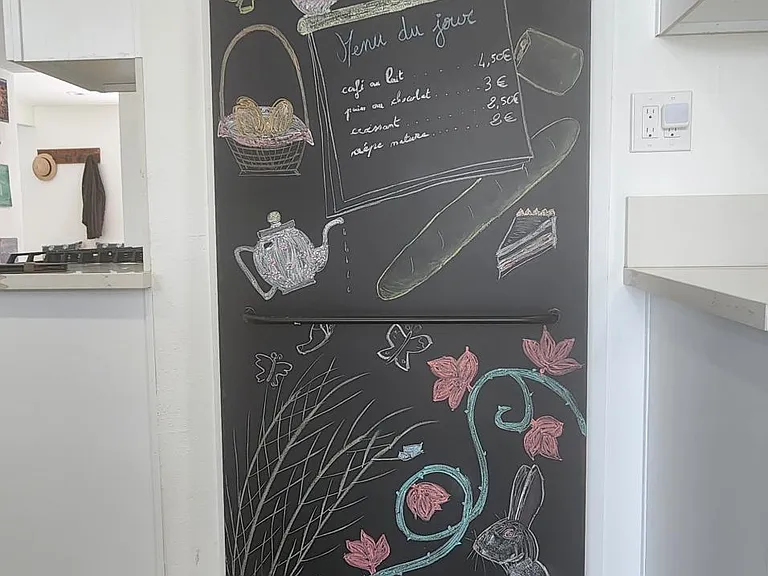 Menu du jour
café au lait . . . . . . . . . 4,50€
pain au chocolat . . . . . . . 3€
croissant . . . . . . . . . . 2,50€
crêpe nature . . . . . . . . . 2€